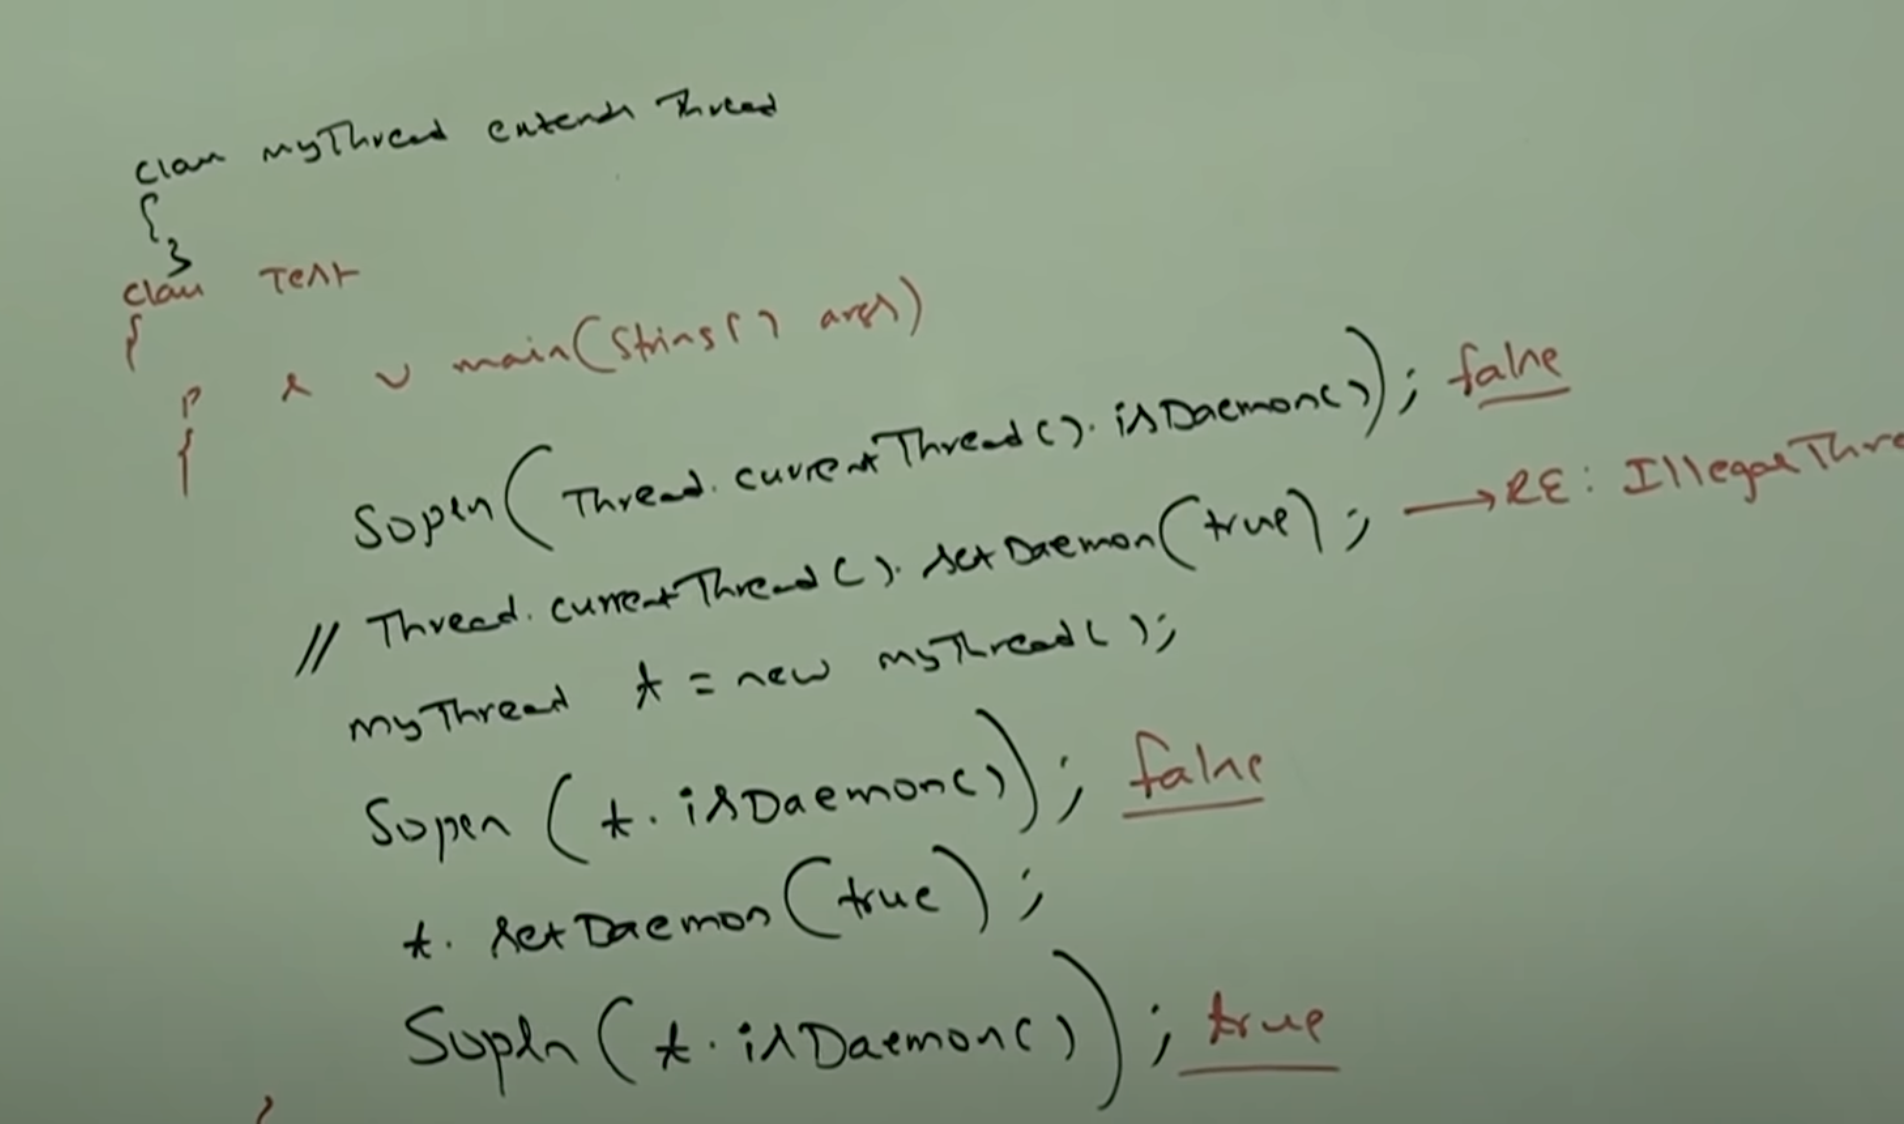 class myThread extends Thread
{
}
class Test
{
p s v main(String[] args)
{
Sopln(Thread.currentThread().isDaemon()); false
// Thread.currentThread().setDaemon(true); → RE: IllegalThre
myThread t = new myThread();
Sopln(t.isDaemon()); false
t.setDaemon(true);
Sopln(t.isDaemon()); true
}